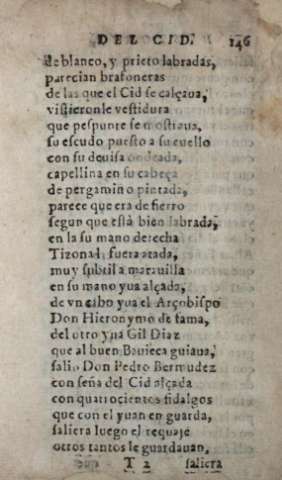 DEL CID. 146
de blanco, y prieto labradas,
parecian brafoneras
de las que el Cid se calçaua,
vistieronle vestidura
que pespunte se mostraua,
su escudo puesto a su cuello
con su deuisa ondeada,
capellina en su cabeça
de pergamino pintada,
parece que era de fierro
segun que està bien labrada,
en la su mano derecha
Tizona fuera atada,
muy subtil a marauilla
en su mano yua alçada,
de vn cabo yua el Arçobispo
Don Hieronymo de fama,
del otro yua Gil Diaz
que al buen Bauieca guiaua,
salio Don Pedro Bermudez
con seña del Cid alçada
con quatrocientos fidalgos
que con el yuan en guarda,
saliera luego el requaje
otros tantos le guardauan,
T 2 saliera